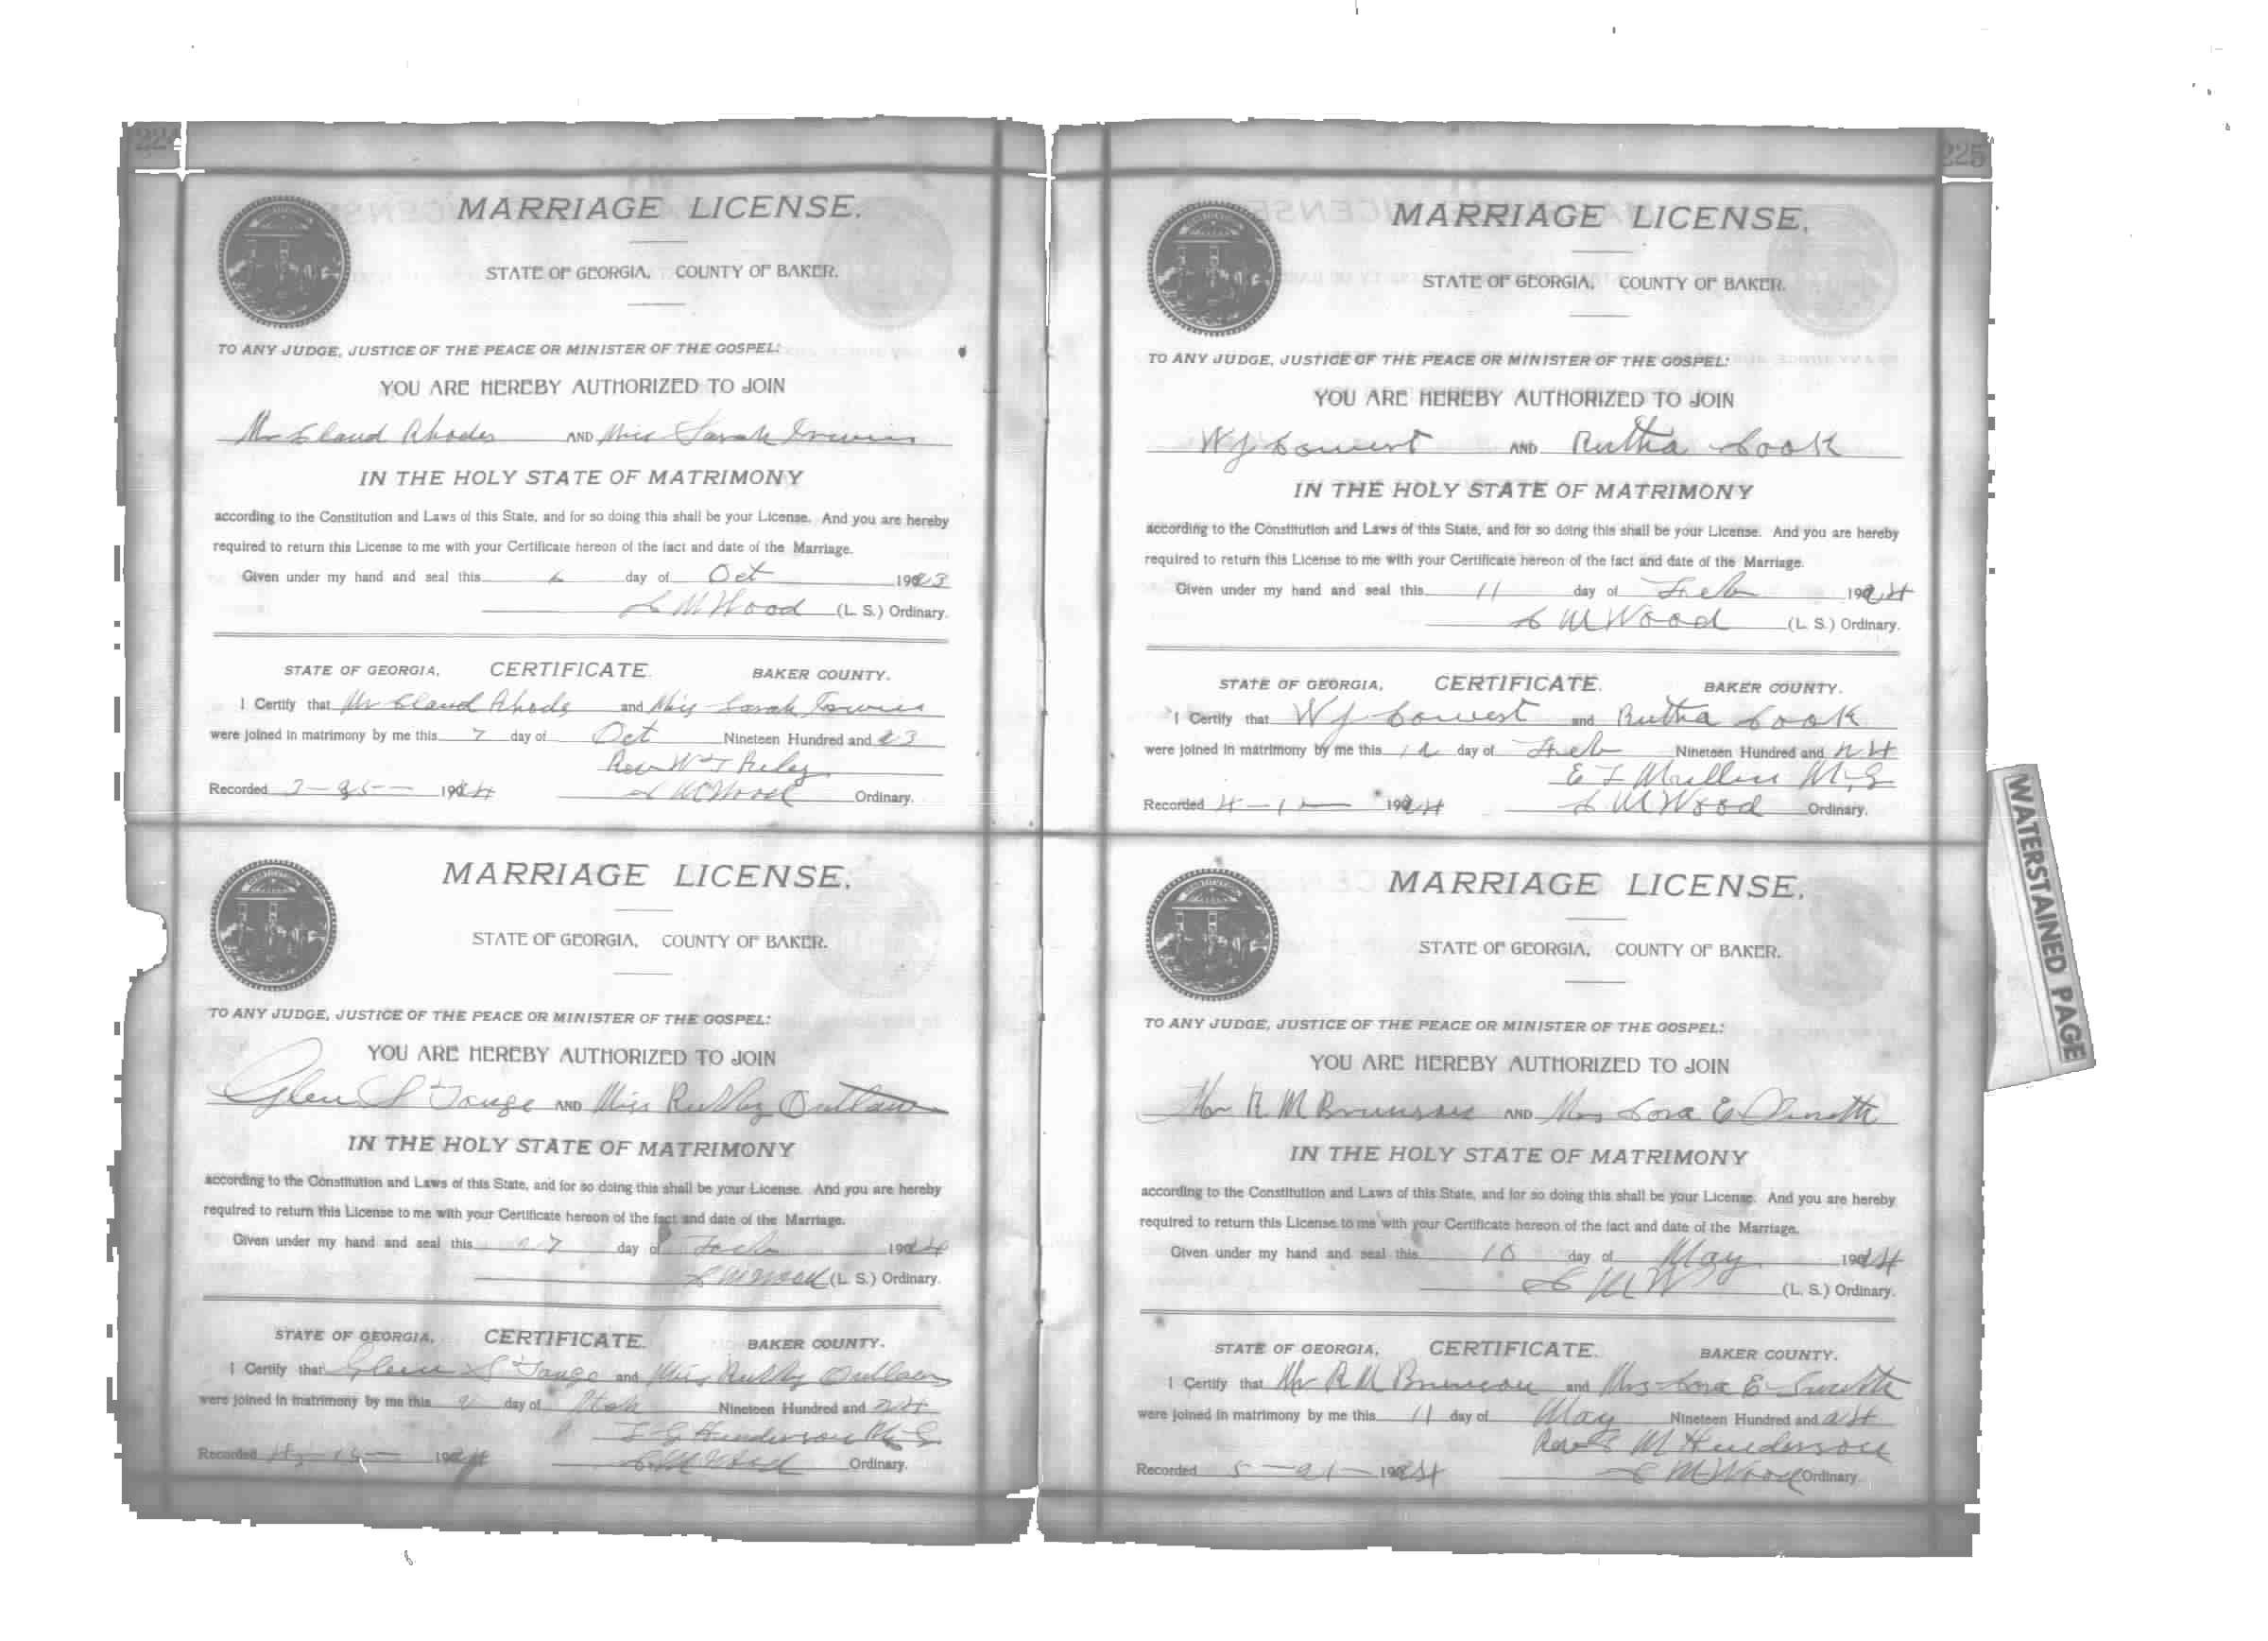 224
MARRIAGE LICENSE.
STATE OF GEORGIA, COUNTY OF BAKER.
TO ANY JUDGE, JUSTICE OF THE PEACE OR MINISTER OF THE GOSPEL:
YOU ARE HEREBY AUTHORIZED TO JOIN
Mr Claud Rhodes AND Miss Sarah
IN THE HOLY STATE OF MATRIMONY
according to the Constitution and Laws of this State, and for so doing this shall be your License. And you are hereby
required to return this License to me with your Certificate hereon of the fact and date of the Marriage.
Given under my hand and seal this 6 day of Oct 1923
L M Wood (L. S.) Ordinary.
STATE OF GEORGIA, CERTIFICATE. BAKER COUNTY.
I Certify that Mr Claud Rhods and Miss Sarah
were joined in matrimony by me this 7 day of Oct Nineteen Hundred and 23
Rev W T
Recorded 3- 1924 L M Wood Ordinary.
MARRIAGE LICENSE.
STATE OF GEORGIA, COUNTY OF BAKER.
TO ANY JUDGE, JUSTICE OF THE PEACE OR MINISTER OF THE GOSPEL:
YOU ARE HEREBY AUTHORIZED TO JOIN
Glen S AND Miss Rubby Outlaw
IN THE HOLY STATE OF MATRIMONY
according to the Constitution and Laws of this State, and for so doing this shall be your License. And you are hereby
required to return this License to me with your Certificate hereon of the fact and date of the Marriage.
Given under my hand and seal this 27 day of Feb 1924
L M Wood (L. S.) Ordinary.
STATE OF GEORGIA, CERTIFICATE. BAKER COUNTY.
I Certify that Glenn S and Miss Rubby Outlaw
were joined in matrimony by me this day of Nineteen Hundred and 24
Henderson M G
Recorded 1924 L M Wood Ordinary.
225
MARRIAGE LICENSE.
STATE OF GEORGIA, COUNTY OF BAKER.
TO ANY JUDGE, JUSTICE OF THE PEACE OR MINISTER OF THE GOSPEL:
YOU ARE HEREBY AUTHORIZED TO JOIN
W J Cowert AND Rutha Cook
IN THE HOLY STATE OF MATRIMONY
according to the Constitution and Laws of this State, and for so doing this shall be your License. And you are hereby
required to return this License to me with your Certificate hereon of the fact and date of the Marriage.
Given under my hand and seal this 11 day of Feb 1924
L M Wood (L. S.) Ordinary.
STATE OF GEORGIA, CERTIFICATE. BAKER COUNTY.
I Certify that W J Cowest and Rutha Cook
were joined in matrimony by me this 12 day of Feb Nineteen Hundred and 24
E Mullin M. G
Recorded 4-1 1924 L M Wood Ordinary.
MARRIAGE LICENSE.
STATE OF GEORGIA, COUNTY OF BAKER.
TO ANY JUDGE, JUSTICE OF THE PEACE OR MINISTER OF THE GOSPEL:
YOU ARE HEREBY AUTHORIZED TO JOIN
Mr R M Brunson AND Mrs Cora E
IN THE HOLY STATE OF MATRIMONY
according to the Constitution and Laws of this State, and for so doing this shall be your License. And you are hereby
required to return this License to me with your Certificate hereon of the fact and date of the Marriage.
Given under my hand and seal this 10 day of May 1924
L M W (L. S.) Ordinary.
STATE OF GEORGIA, CERTIFICATE. BAKER COUNTY.
I Certify that Mr R M Brunson and Mrs Cora E
were joined in matrimony by me this 11 day of May Nineteen Hundred and 24
Rev S M Henderson
Recorded 5-21-1924 L M Wood Ordinary.
WATERSTAINED PAGE